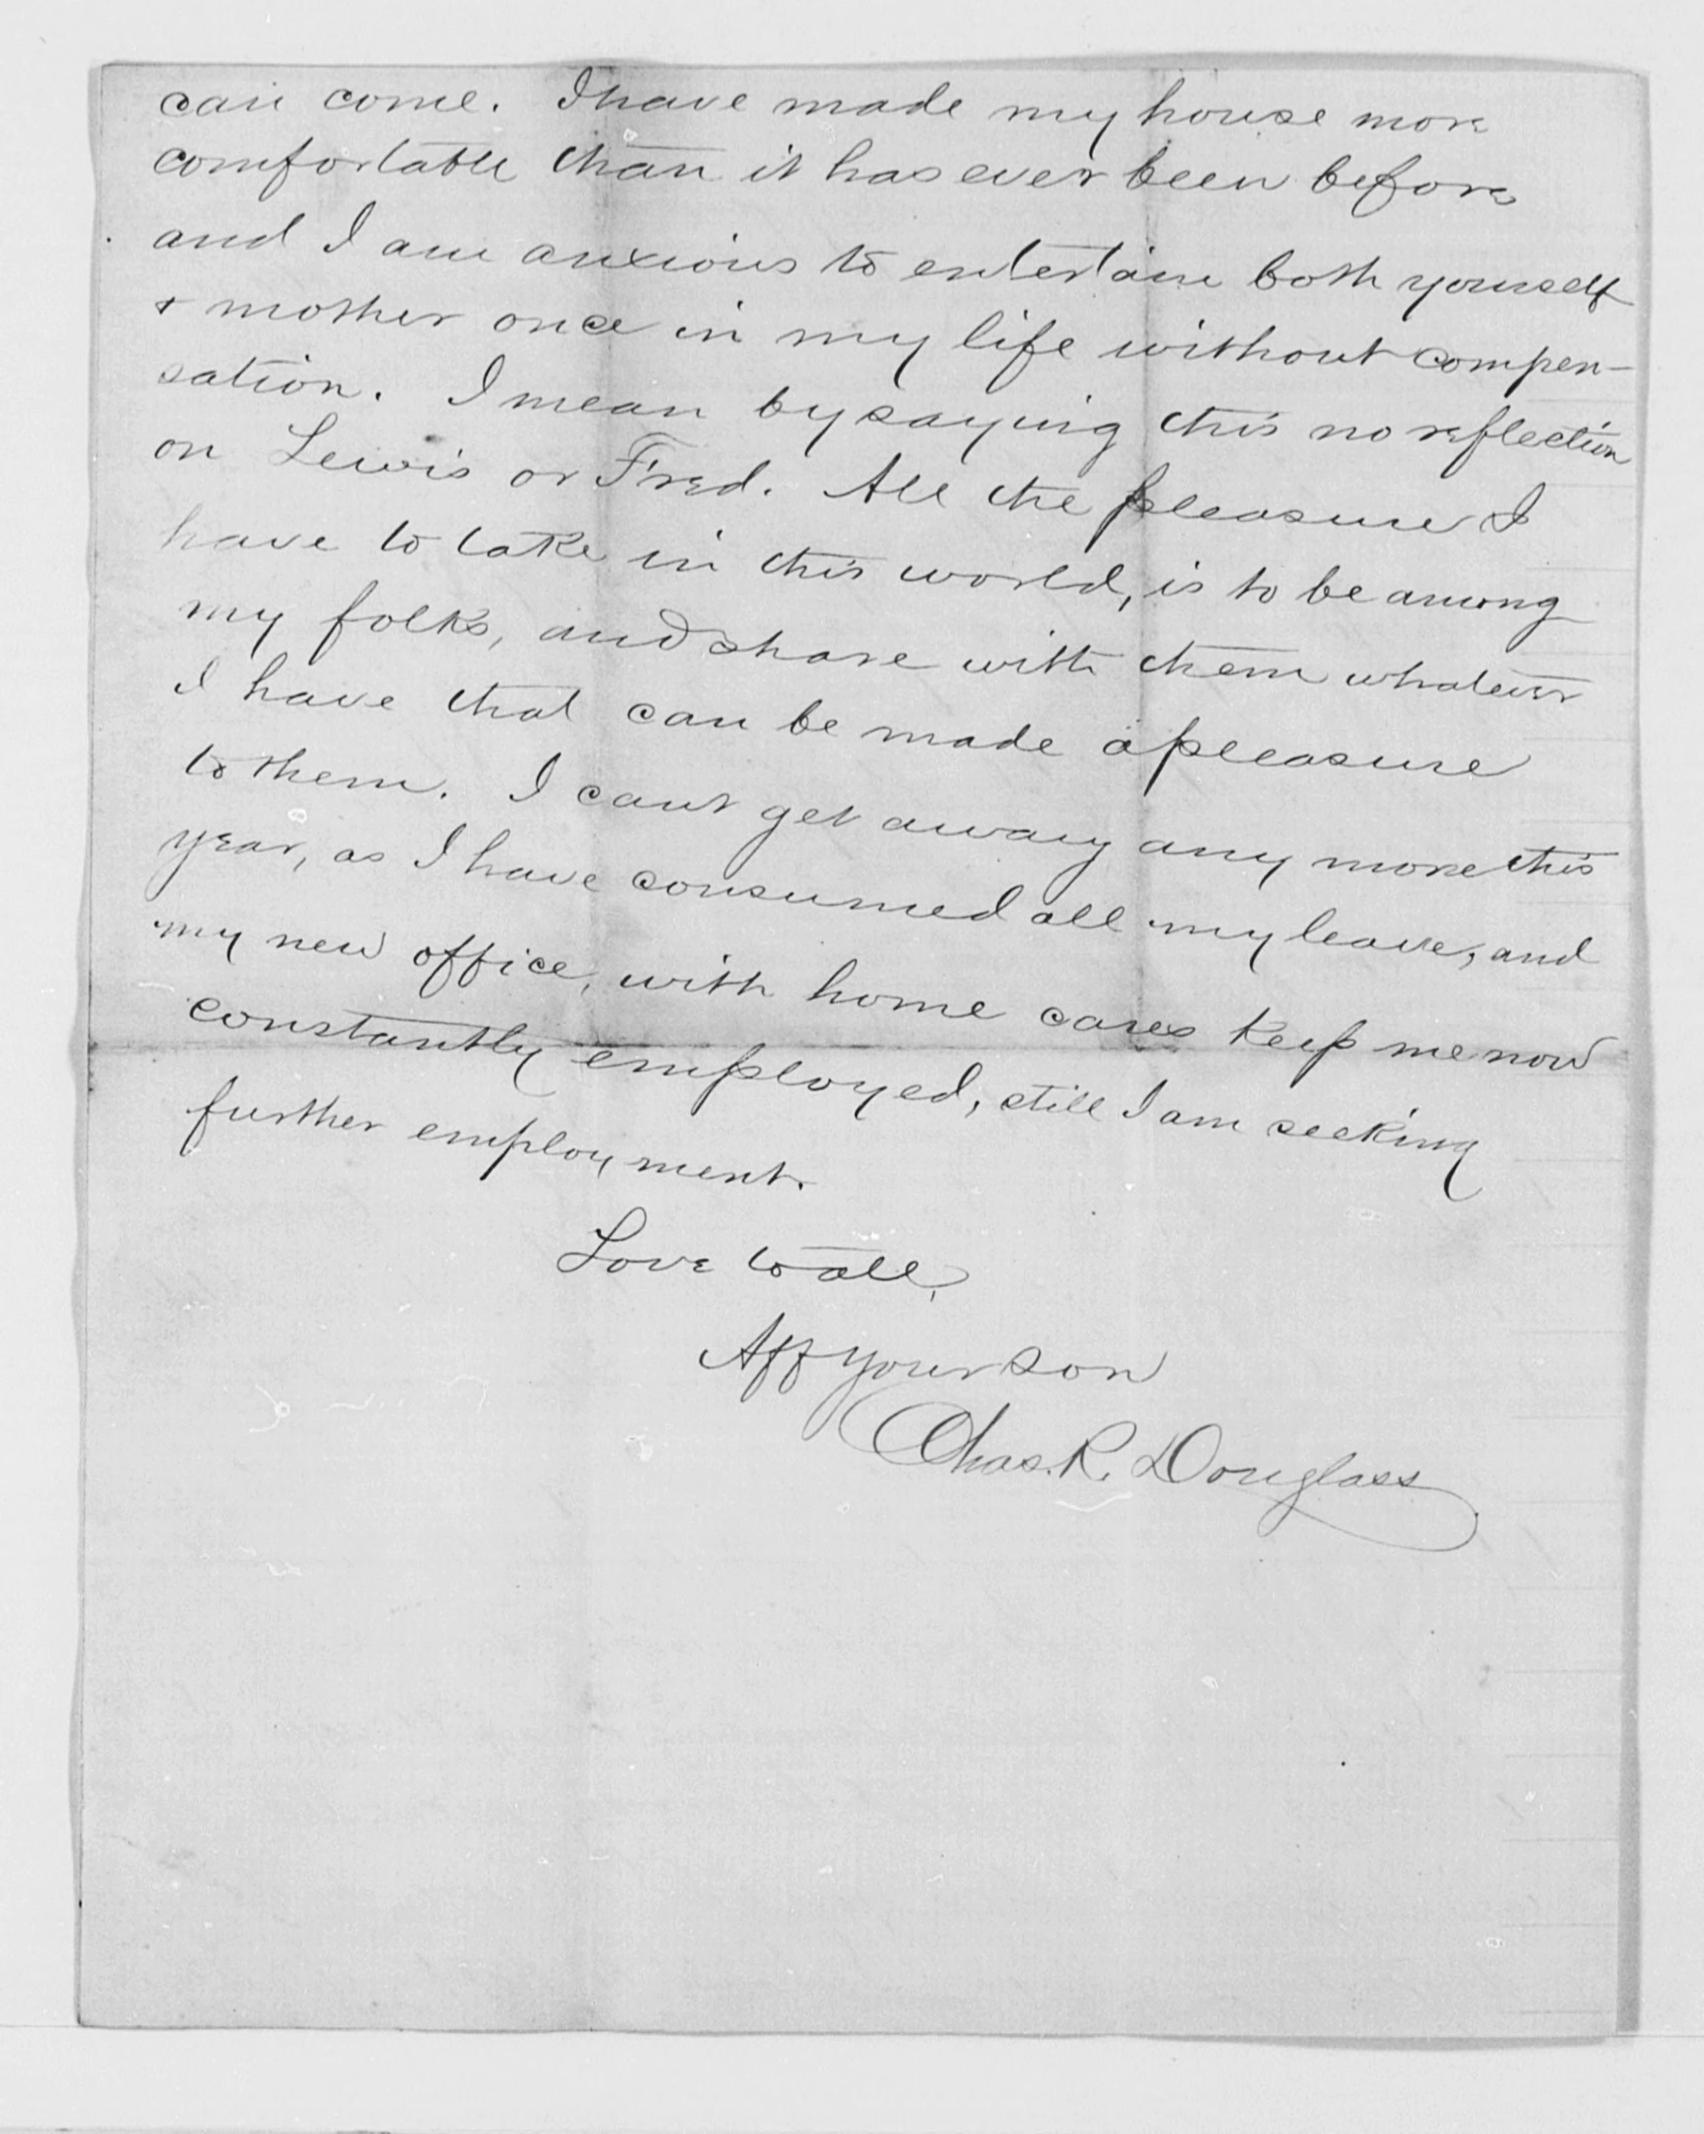 can come. I have made my house more
comfortable than it has ever been before
and I am anxious to entertain both yourself
& mother once in my life without compen-
sation. I mean by saying this no reflection
on Lewis or Fred. All the pleasure I
have to take in this world, is to be among
my folks, and share with them whatever
I have that can be made a pleasure
to them. I cant get away any more this
year, as I have consumed all my leave, and
my new office, with home cares keep me now
constantly employed, still I am seeking
further employment.
Love to all,
Aff your son
Chas. R. Douglass